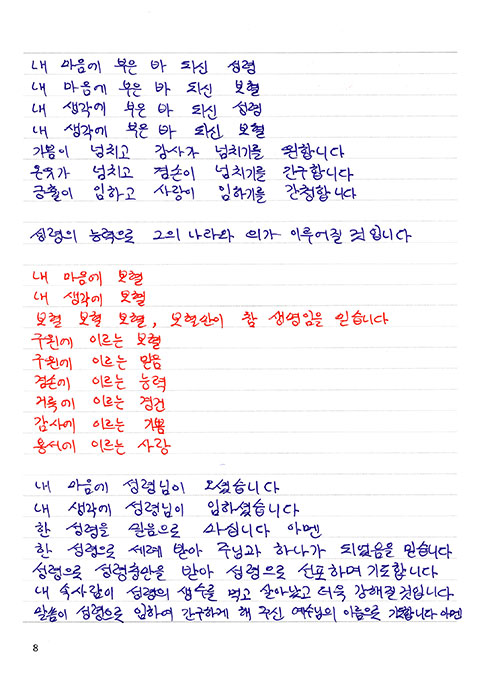 내 마음에 부은 바 되신 성령
내 마음에 부은 바 되신 보혈
내 생각에 부은 바 되신 성령
내 생각에 부은 바 되신 보혈
기쁨이 넘치고 감사가 넘치기를 원합니다
온유가 넘치고 겸손이 넘치기를 간구합니다
긍휼이 임하고 사랑이 임하기를 간청합니다
성령의 능력으로 그의 나라와 의가 이루어질 것입니다
내 마음에 보혈
내 생각에 보혈
보혈 보혈 보혈, 보혈만이 참 생명임을 믿습니다
구원에 이르는 보혈
구원에 이르는 믿음
겸손에 이르는 능력
거룩에 이르는 경건
감사에 이르는 기쁨
용서에 이르는 사랑
내 마음에 성령님이 오셨습니다
내 생각에 성령님이 임하셨습니다
한 성령을 믿음으로 마십니다 아멘
한 성령으로 세례 받아 주님과 하나가 되었음을 믿습니다
성령으로 성령충만을 받아 성령으로 선포하며 기도합니다
내 속사람이 성령의 생수를 먹고 살아났고 더욱 강해질것입니다
말씀이 성령으로 임하여 간구하게 해 주신 예수님의 이름으로 기도합니다 아멘
8